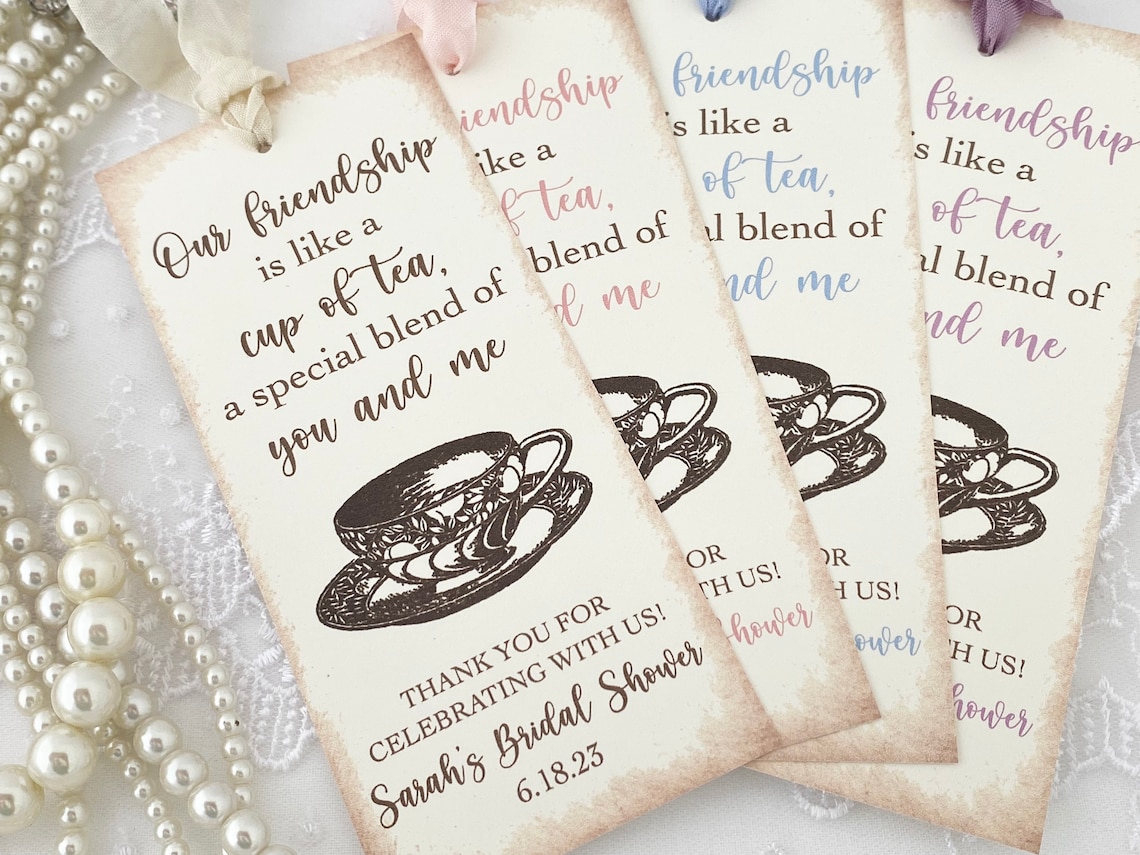 Our friendship
is like a
cup of tea,
a special blend of
you and me
THANK YOU FOR
CELEBRATING WITH US!
Sarah's Bridal Shower
6.18.23
friendship
like a
of tea,
blend of
me
OR
US!
Shower
friendship
is like a
of tea,
blend of
and me
OR
US!
Shower
friendship
is like a
of tea,
blend of
and me
OR
US!
Shower